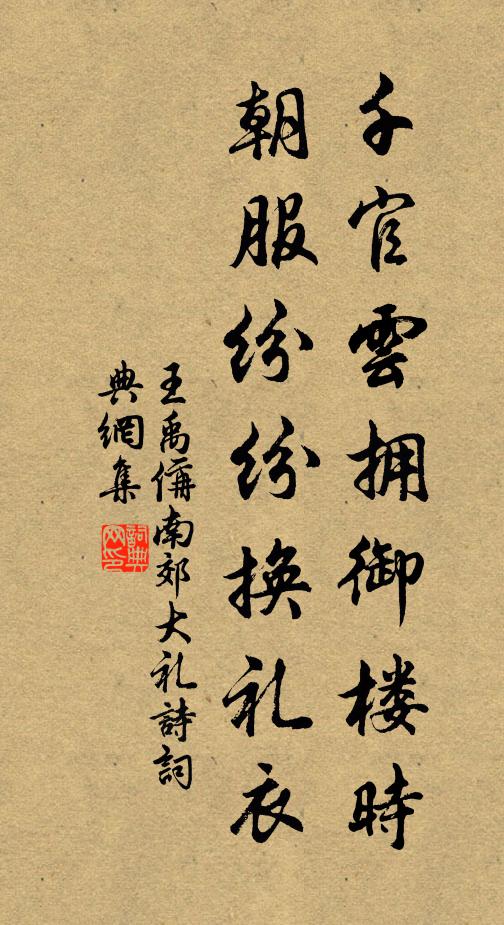 千官雲拥御楼時
朝服纷纷换礼衣
王禹偁南郊大礼詩詞
典網集
詞典網印